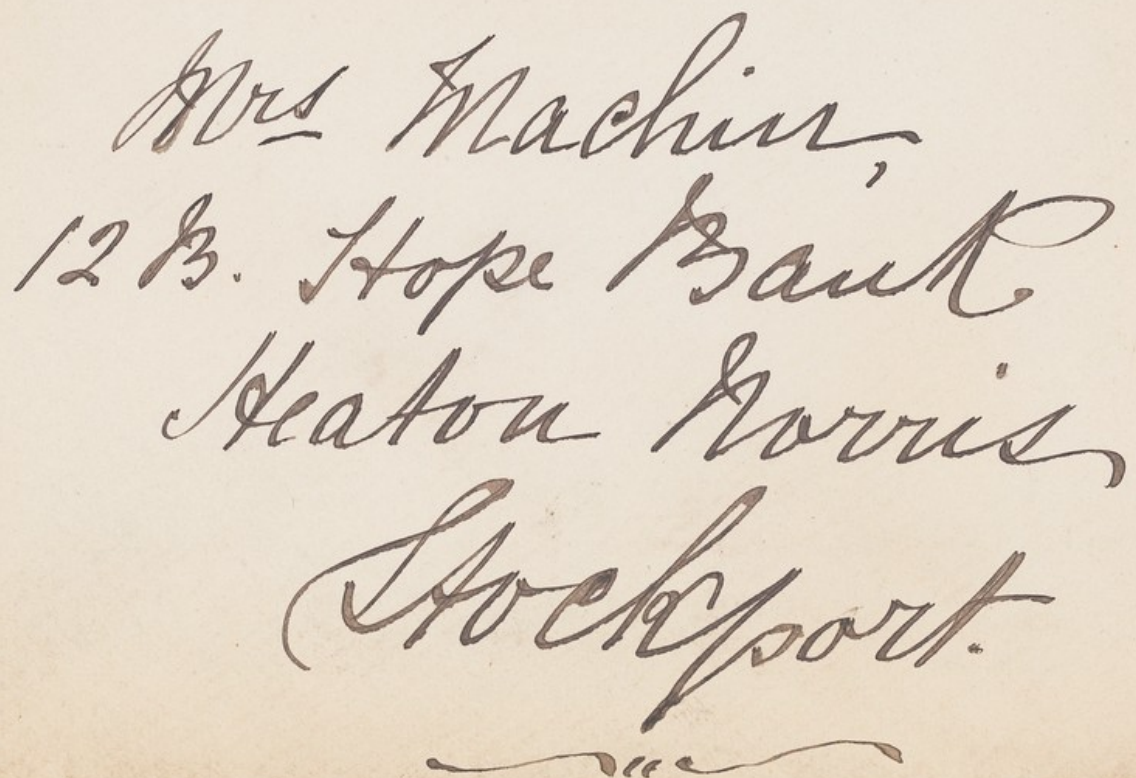 Mrs Machin,
12 B. Hope Bank
Heaton Norris
Stockport.